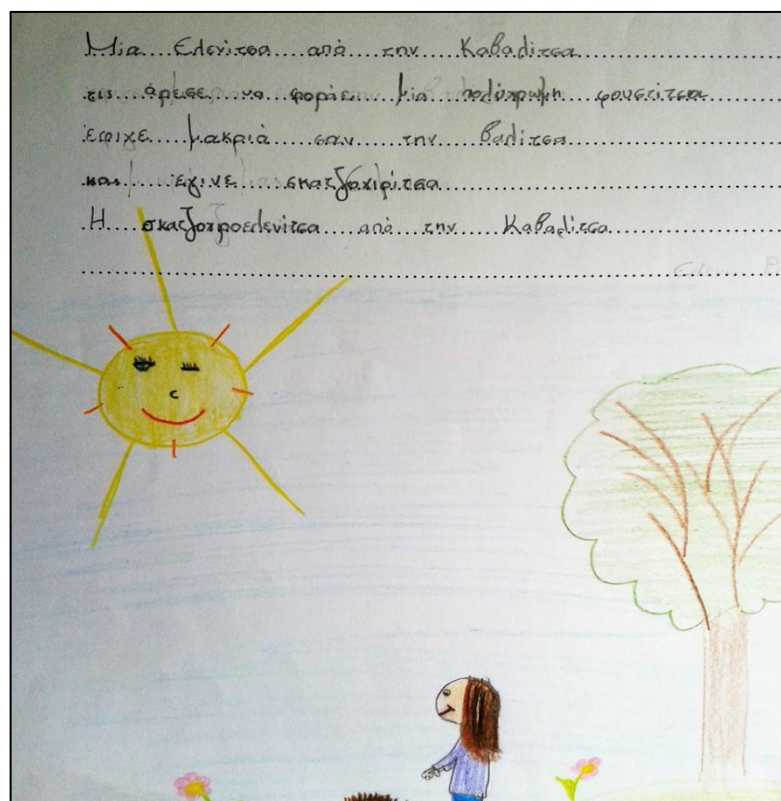 Μια Ελενίτσα από την Καβαλίτσα
τις άρεσε να φοράει μια πολύχρωμη φουστίτσα
έφιχε μακριά σαν την βαλίτσα
και έγινε σκατζοχιρίτσα
Η σκατζοχροελενίτσα από την Καβαλίτσα